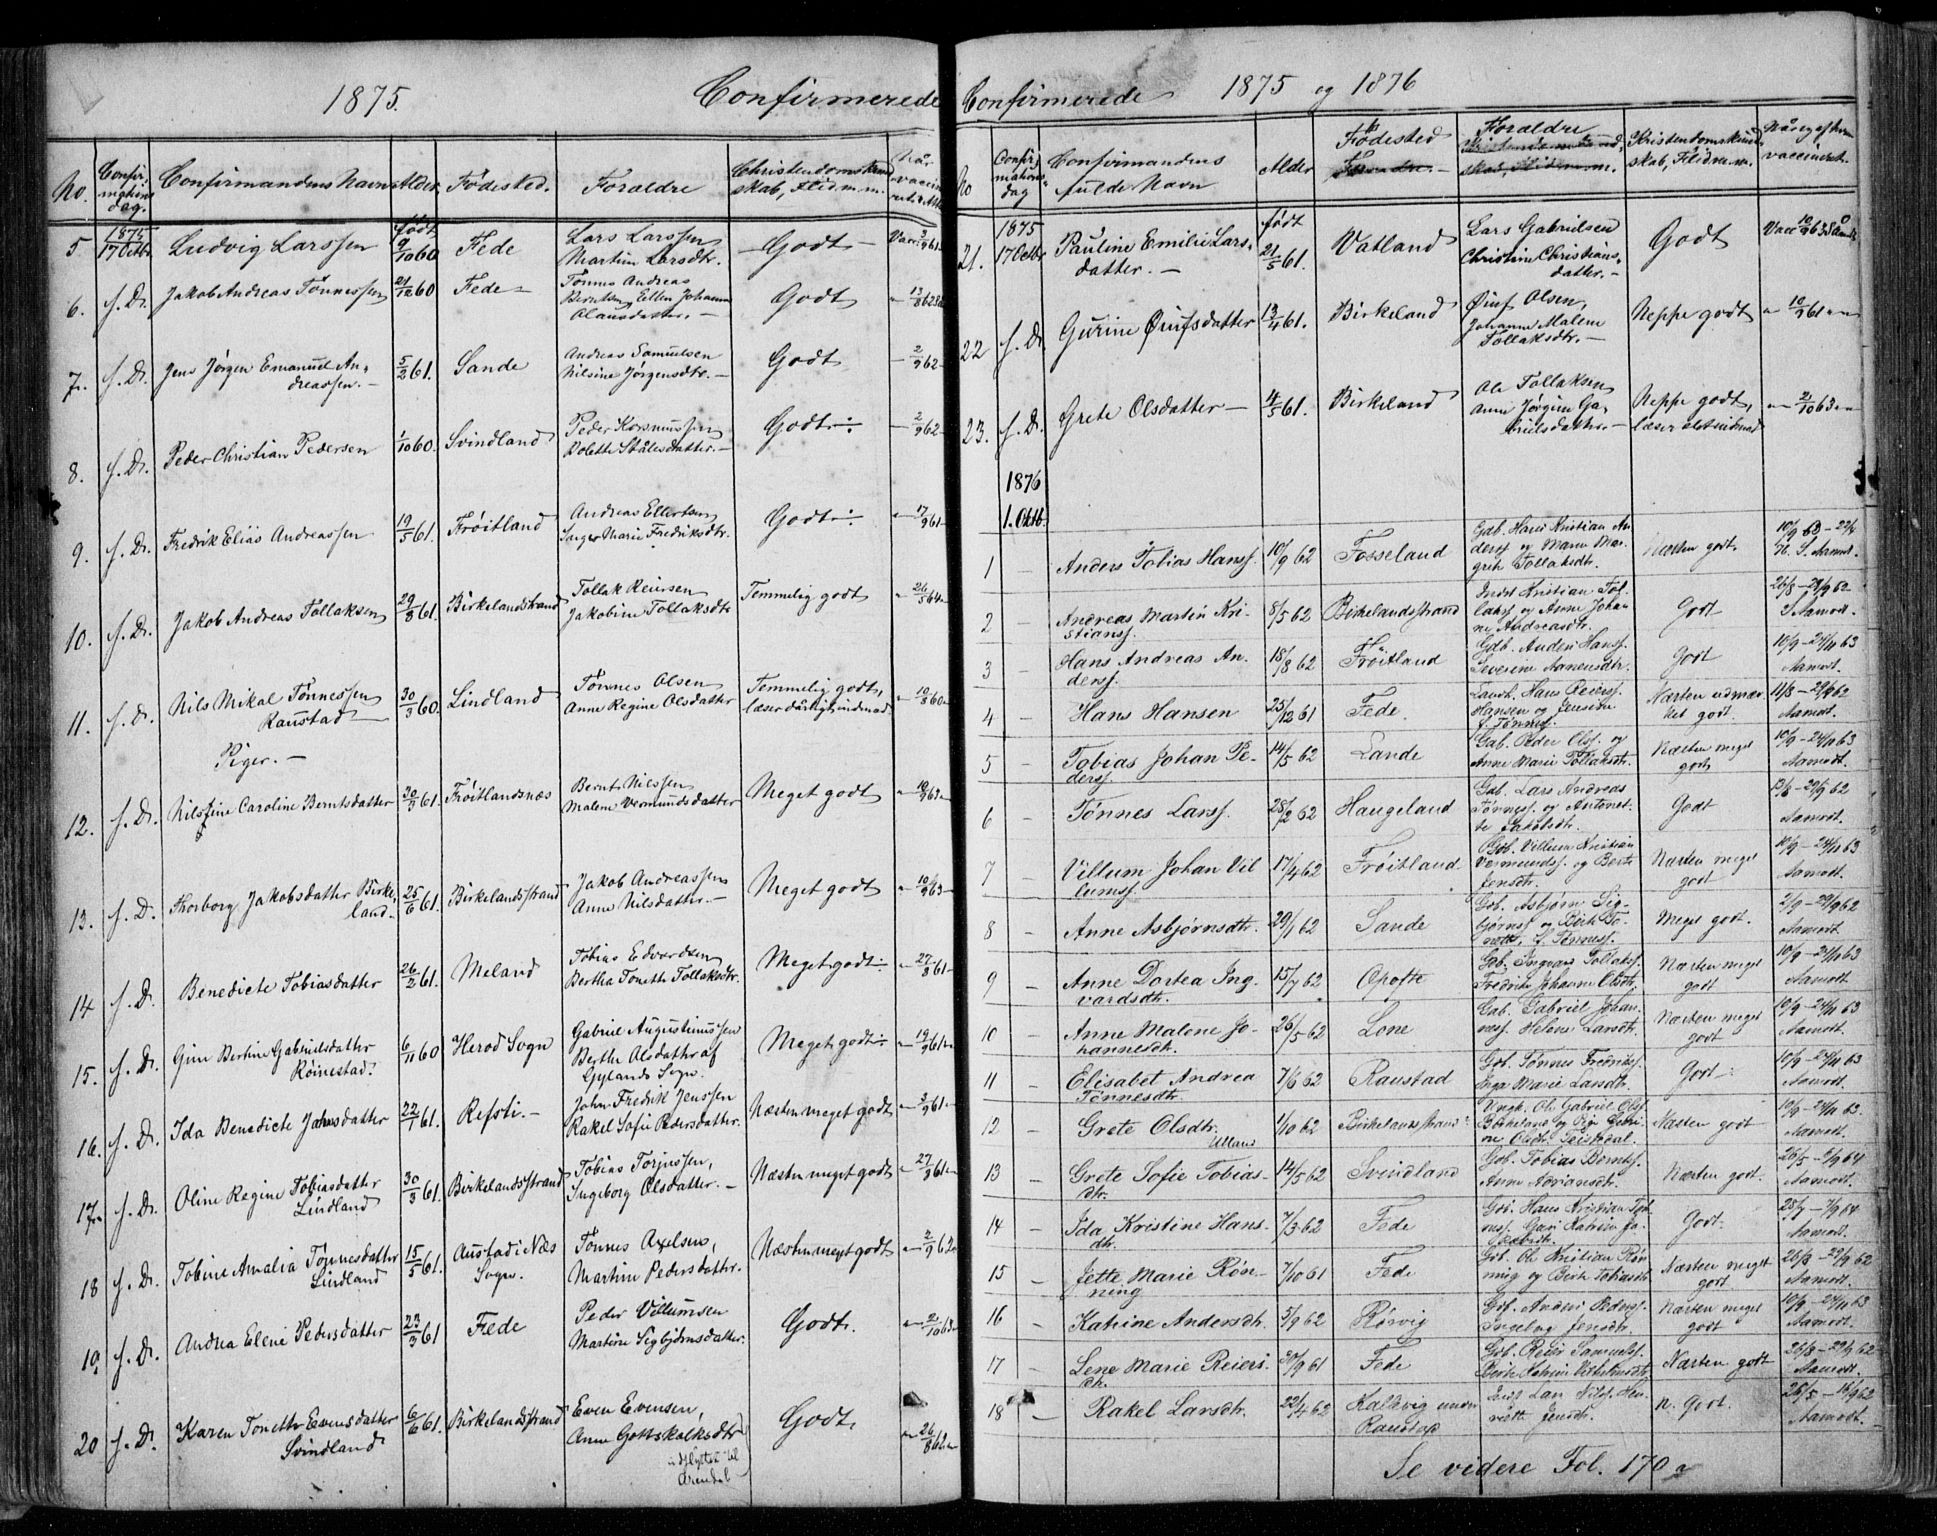 1875.
Confirmerede
No.
Confirmationsdag.
Confirmandens Navn
Alder
Fødested.
Forældre
Christendomskundskab, Flid m.m.
5 1875 17 Octbr Ludvig Larssen født 9/10 60 Fede Lars Larssen Martine Larsdtr. Godt
6. f. D. Jakob Andreas Tønnessen 21/12 60 Fede Tønnes Andreas Berntsen, Ellen Johanne Olausdatter. Godt
7. f. D. Jens Jørgen Emanuel Andreassen. 5/2 61. Sande Andreas Samuelsen Nilsine Jørgensdtr. Godt 2/9 62
8. f. D. Peder Christian Pedersen 1/10 60. Svindland Peder Rasmussen Bolette Ståletsdatter. Godt 2/9 62
9. f. D. Fredrik Elias Andreassen 19/5 61. Frøitland Andreas Ellertsen Inger Marie Fredriksdtr. Godt 17/9 61
10. f. D. Jakob Andreas Tollaksen 29/8 61. Birkelandstrand Tollak Reiersen Jakobine Tollaksdtr Temmelig godt 26/5 64
11. f. D. Nils Mikal Tønnessen Raustad 30/3 60. Lindland Tønnes Olsen Anne Regine Olsdatter Temmelig godt, læser dårlig indenad 10/8 60
Piger.
12. f. D. Nilsine Caroline Berntsdatter 30/3 61. Frøitlandsnæs Bernt Nilssen Malene Vermundsdatter Meget godt 10/9 63
13. f. D. Thorborg Jakobsdatter Birkeland. 25/6 61. Birkelandsstrand Jakob Andreassen Anne Nilsdatter. Meget godt 10/9 63
14 f. D. Benedicte Tobiasdatter 26/2 61. Meland Tobias Edvardsen Bertha Tonette Tollaksdtr. Meget godt 27/8 61
15. f. D. Gine Bertine Gabrielsdatter Røinestad. 6/11 60 Herod Sogn Gabriel Augustinussen Berthe Olsdatter af Gylands Sogn. Meget godt 19/9 61
16. f. D. Ida Benedicte Johnsdatter 22/1 61. Refsti. John Fredrik Jenssen Rakel Sofie Pedersdatter. Næsten meget godt 3/9 61
17. f. D. Oline Regine Tobiasdatter Lindland 30/3 61. Birkelandsstrand Tobias Torjussen, Ingeborg Olsdatter. Næsten meget godt 27/8 61
18 f. D. Tobine Amalia Tønnesdatter Lindland 15/5 61. Austad i Næs Sogn. Tønnes Axelsen, Martine Pedersdatter. Næsten meget godt 2/9 62
19. f. D. Andrea Elene Pedersdatter 23/3 61 Fede Peder Villumsen Martine Sigbjørnsdatter. Godt. 2/10 63
20 f. D. Karen Tonette Evensdatter Svindland 6/6 61. Birkelandsstrand Even Evensen, Anne Gottskalksdtr udflyttet til Arendal Godt. 26/8 62
Confirmerede 1875 og 1876
No
Confirmationsdag
Confirmandens fulde Navn
Alder
Fødested
Forældre
Kristendomskundskab, Flid m.m.
Når og af hvem vaccineret.
21. 1875 17 Octbr Pauline Emilie Larsdatter. født 21/5 61. Vatland Lars Gabrielsen Christine Christiansdatter. Godt Vacc 10/9 63
22 f. D. Gurine Øiufsdatter 13/4 61. Birkeland Øiuf Olsen, Johanne Malene Tollaksdtr. Neppe godt 10/9 61
23. f. D. Grete Olsdatter 4/5 61. Birkeland Ole Tollaksen Anne Jørgine Gabrielsdatter. Neppe godt, læser slet indenad 21/10 63
1876
1. Oktb.
1 Anders Tobias Hanss. 10/9 62 Fosseland Gdb. Hans Kristian Anderss og Maren Margrete Tollaksdtr. Næsten godt.
2 Andreas Martin Kristianss. 8/5 62 Birkelandsstrand Kristian Tollakss og Anne Johanne Andreasdtr. Godt 26/8 - 29/9 62 Aamodt.
3 Hans Andreas Anderss. 18/8 62 Frøitland Gdb. Anders Hanss. Severine Aanensdtr. Godt 10/9 - 24/11 63 Aamodt.
4 Hans Hansen 25/12 61 Fede. Hans Reierss. Hansen og f. Tønness. Næsten udmærket godt. 11/8 - 29/9 62 Aamodt.
5 Tobias Johan Pederss. 14/5 62 Lande Gdb. Peder Olss. og Anne Marie Tollaksdtr. Næsten meget godt 10/9 - 24/11 63 Aamodt.
6 Tønnes Larss. 28/2 62 Haugeland Gdb. Lars Andreas Tønness. og Antonette Jakobsdtr. Godt 29/9 62 Aamodt.
7 Villum Johan Villumss. 17/4 62 Frøitland Gdb. Villum Kristian Vermundss. og Berte Jensdtr. Næsten meget godt 10/9 - 24/11 63 Aamodt.
8 Anne Asbjørnsdtr. 29/1 62 Sande Gdb. Asbjørn Sigbjørnss og Berte Tonette, f. Tønness. Meget godt. 2/9 - 29/9 62 Aamodt.
9 Anne Dortea Ingvardsdtr. 15/7 62 Opofte Gdb. Ingvard Tollakss. Fredrike Johanne Olsdtr. Næsten meget godt 10/9 - 24/11 63 Aamodt.
10 Anne Malene Johannesdtr. 26/5 62 Lone Gab. Gabriel Johanness. Helene Larsdtr. Næsten meget godt 10/9 - 24/11 63 Aamodt.
11 Elisabet Andrea Tønnesdtr. 7/6 62 Raustad Gdb. Tønnes Inga Marie Larsdtr. Godt 10/9 - 24/11 63 Aamodt.
12 Grete Olsdtr. Ulland 1/10 62 Birkelandsstrand Ungk. Ole Gabriel Olss. Birkeland og Pige Olsdtr. Næsten godt 10/9 - 24/11 63. Aamodt.
13 Grete Sofie Tobiasdtr. 14/5 62 Svindland Gdb. Tobias Berntss. Anne Adriansdtr. Næsten godt. Aamodt.
14 Ida Kristine Hansdtr. 7/3 62 Fede Gdb. Hans Kristian Jakobsdtr. Godt. Aamodt.
15 Jette Marie Rønning 7/10 61 Fede Gdb. Ole Kristian Rønning og Berte Tobiasdtr Næsten meget godt 26/8 - 29/9 62 Aamodt.
16 Katrine Andersdtr. 5/9 62 Rørvig Gdb. Anders Pederss. Ingeborg Jensdtr. Næsten meget godt 10/9 - 24/11 63 Aamodt.
17 Lene Marie Reiersdtr. 30/9 61 Fede Gdb. Reier Samuelss. Berte Katrine Villumsdtr. Næsten godt 26/8 - 29/9 62 Aamodt.
18 Rakel Larsdtr. 22/4 62 Kalhvig under Raustad Lars Nilss. Henriette Jensdtr. N. Godt. 26/5 Aamodt.
Se videre Fol. 170 a